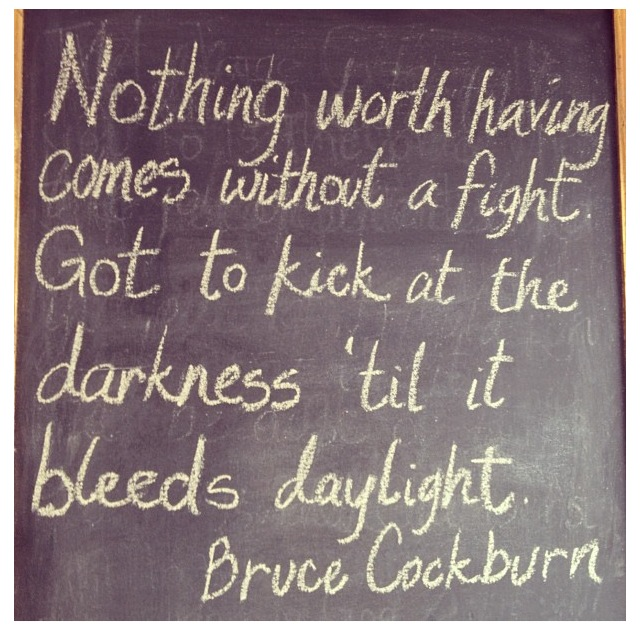 Nothing worth having
comes without a fight.
Got to kick at the
darkness 'til it
bleeds daylight.
Bruce Cockburn